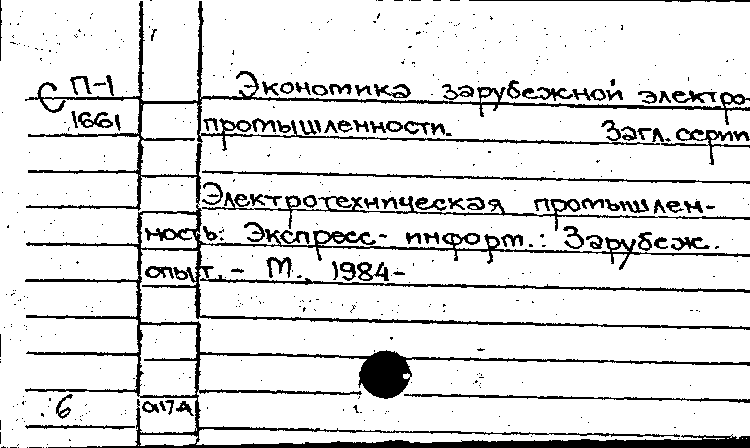 С П-1 Экономика зарубежной электро-
1661 промышленности. Загл. серии
Электротехническая промышлен-
ность: Экспресс-информ.: Зарубеж.
опыт. - М., 1984-
6